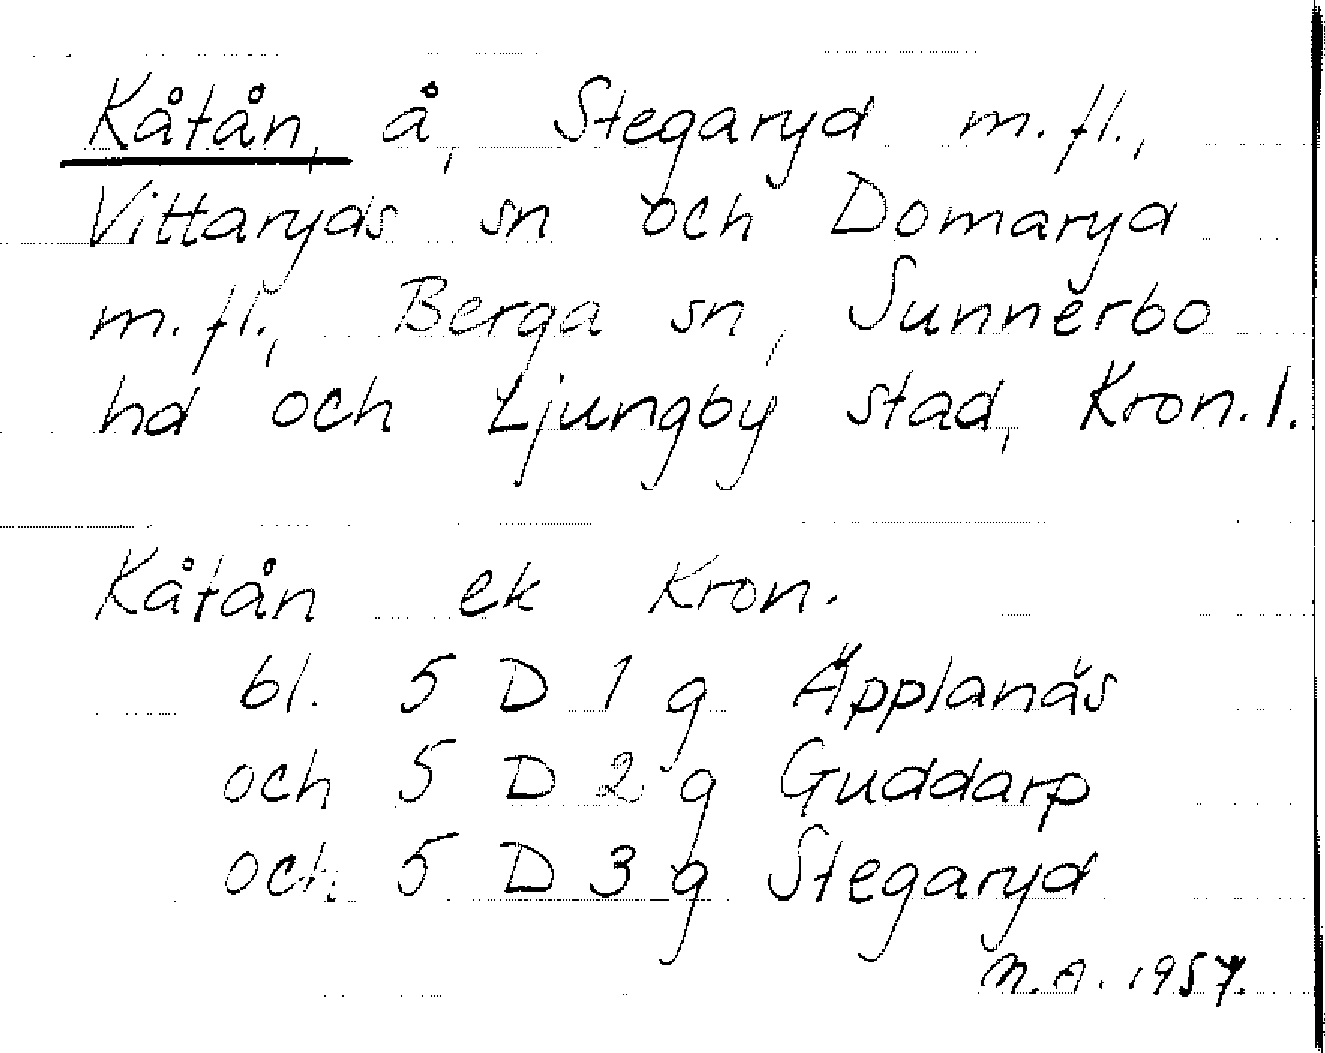 Kåtån, å, Stegaryd m.fl.,
Vittaryds sn och Domaryd
m.fl., Berga sn, Sunnerbo
hd och Ljungby stad, Kron.l.
Kåtån ek Kron.
bl. 5 D 1 g Äpplanäs
och 5 D 2 g Guddarp
och 5 D 3 g Stegaryd
N.A. 1957.